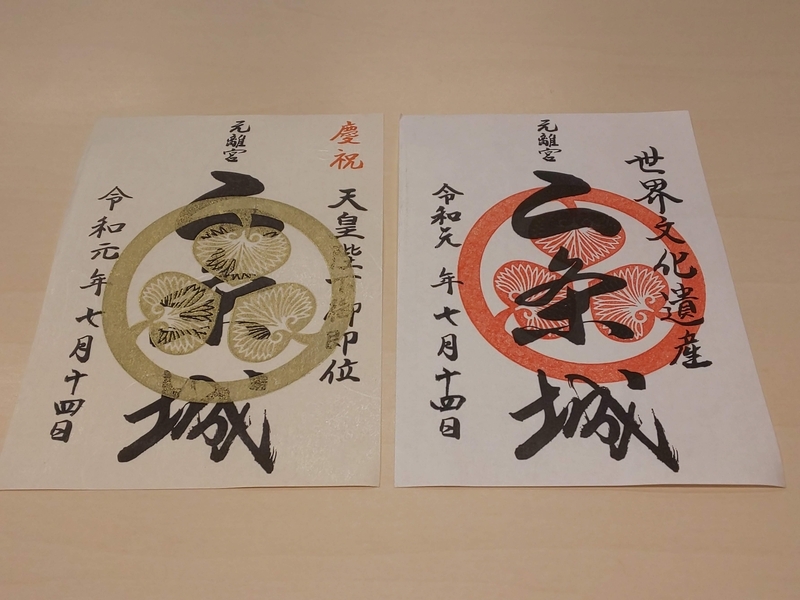 慶祝
天皇陛下御即位
元離宮
二条城
令和元年七月十四日
世界文化遺産
元離宮
二条城
令和元年七月十四日